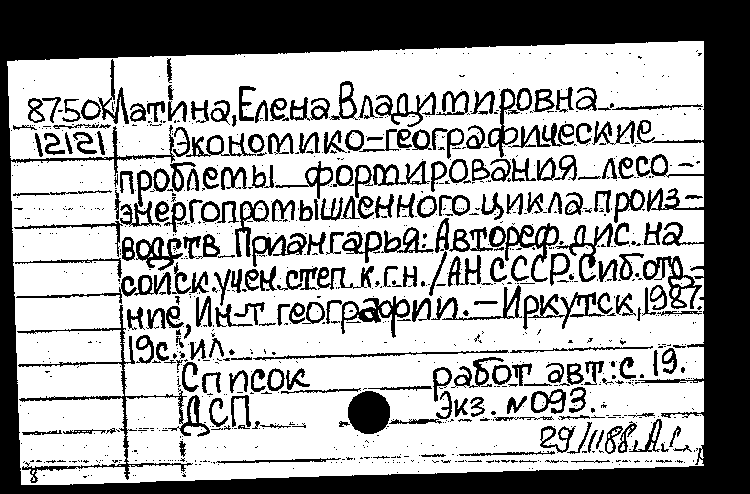 87-50К Латина, Елена Владимировна.
12121 Экономико-географические
проблемы формирования лесо-
энергопромышленного цикла произ-
водств Приангарья: Автореф. дис. на
соиск. учен. степ. к.г.н. / АН СССР. Сиб. отд-
ние, Ин-т географии. — Иркутск, 1987.-
19с.: ил.
Список работ авт.: с. 19.
ДСП. Экз. №093.
29/II88. А.С.
8